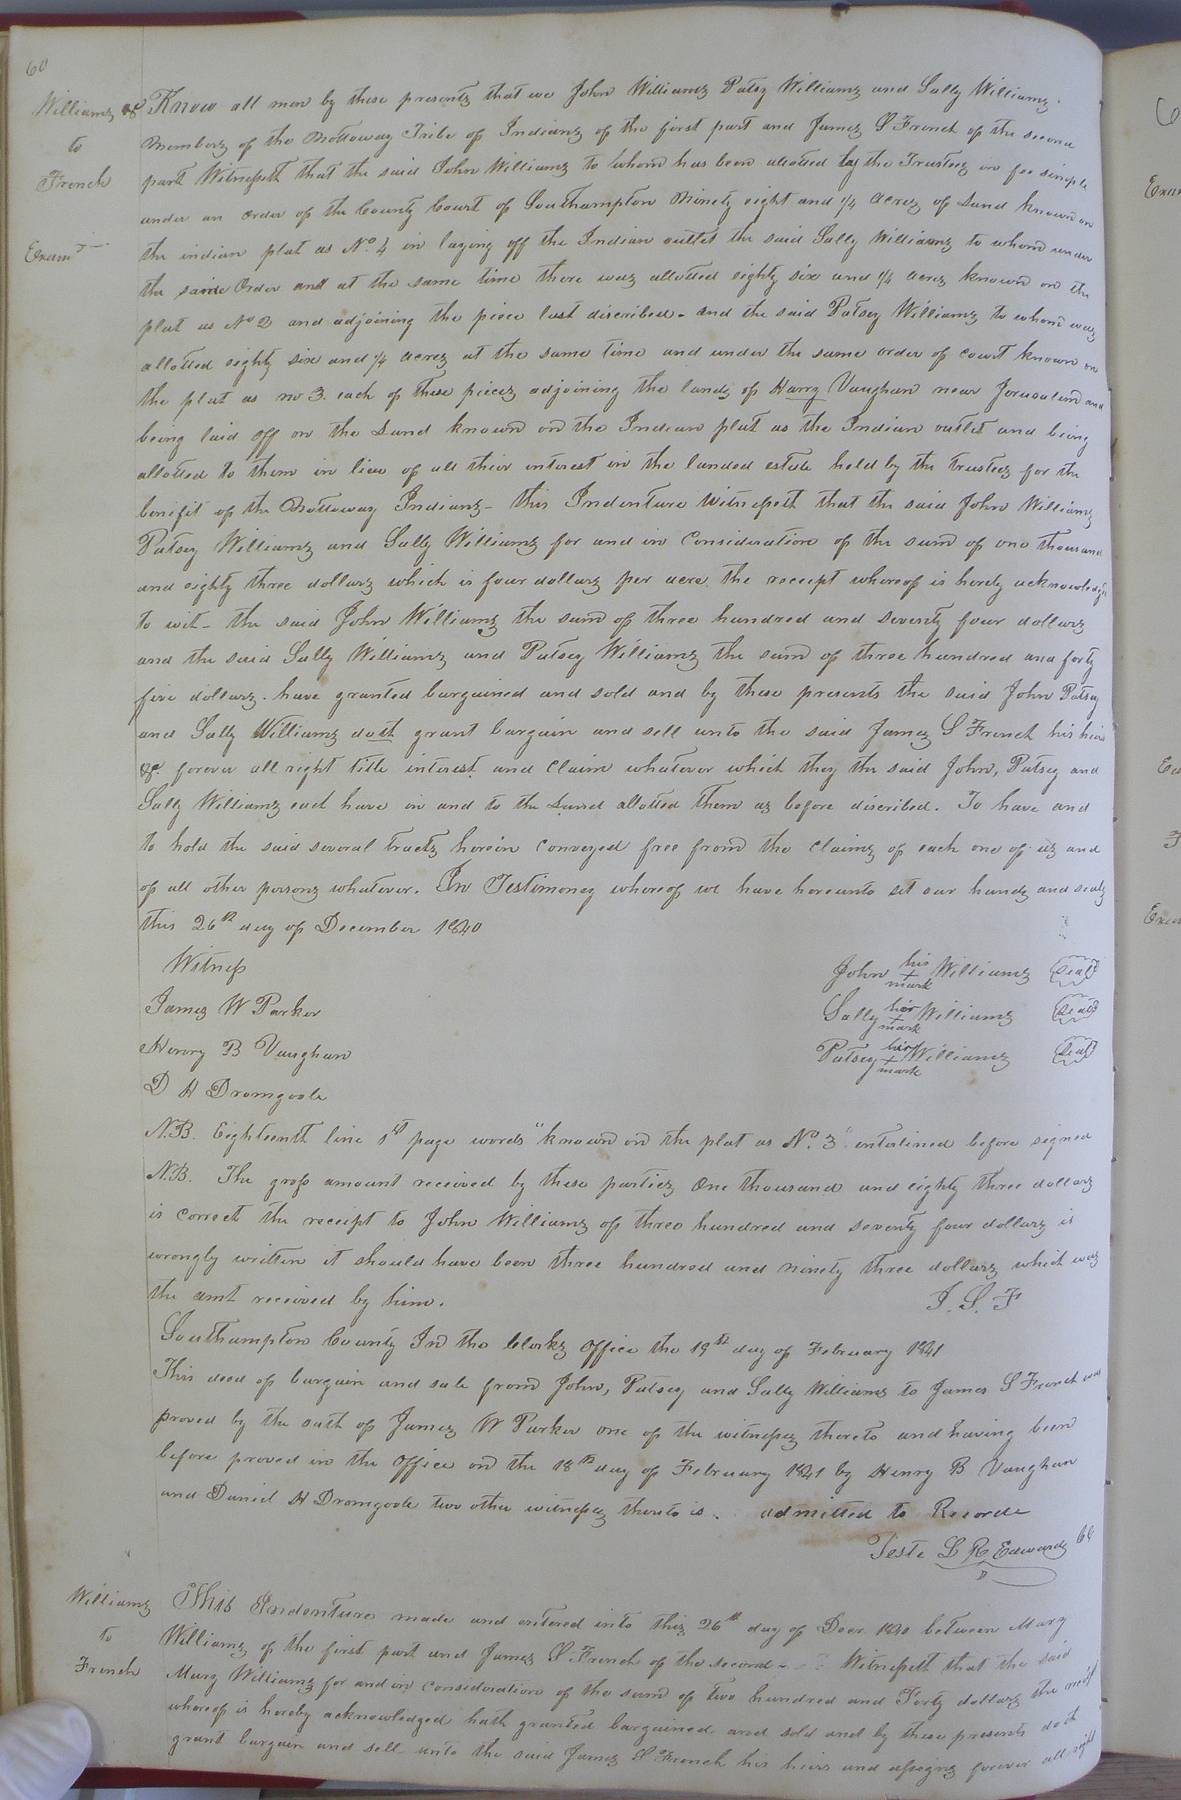 60
Williams &c
to
French
Examd
Know all men by these presents that we John Williams Patsy Williams and Sally Williams
Members of the Nottoway Tribe of Indians of the first part and James S French of the second
part Witnesseth that the said John Williams to whom has been allotted by the Trustees in fee simple
under an order of the County Court of Southampton Ninety eight and 1/4 acres of Land known on
the indian plat as No. 4 in laying off the Indian outlet the said Sally Williams to whom under
the same Order and at the same time there was allotted eighty six and 1/4 acres known on the
plat as No 2 and adjoining the piece last discribed - and the said Patsey Williams to whom was
allotted eighty six and 1/4 acres at the same time and under the same order of court known on
the plat as no 3. each of these pieces adjoining the lands of Harry Vaughan near Jerusalem and
being laid off on the Land known on the Indian plat as the Indian outlet and being
allotted to them in lieu of all their interest in the landed estate held by the trustees for the
benifit of the Nottoway Indians - this Indenture Witnesseth that the said John Williams
Patsey Williams and Sally Williams for and in Consideration of the sum of one thousand
and eighty three dollars which is four dollars per acre the receipt whereof is herely acknowledged
to wit - the said John Williams the sum of three hundred and seventy four dollars
and the said Sally Williams and Patsey Williams the sum of three hundred and forty
five dollars. have granted bargained and sold and by these presents the said John Patsey
and Sally Williams doth grant bargain and sell unto the said James S French his heirs
&c. forever all right title interest and Claim whatever which they the said John, Patsey and
Sally Williams each have in and to the Land allotted them as before discribed. To have and
to hold the said several tracts herein conveyed free from the claims of each one of us and
of all other persons whatever. In Testimoney whereof we have hereunto set our hands and seals
this 26th day of December 1840
Witness
John his + mark Williams Seal
James W Parker
Sally her + mark Williams Seal
Henry B Vaughan
Patsey her + mark Williams Seal
D H Dromgoole
N.B. Eighteenth line 1st page words "known on the plat as No. 3" interlined before signed
N.B. The gross amount received by these parties One thousand and eighty three dollars
is correct the receipt to John Williams of three hundred and seventy four dollars is
wrongly written it should have been three hundred and ninety three dollars which was
the amt received by him. J. S. F
Southampton County In the Clerks Office the 19th day of February 1841
This deed of bargain and sale from John, Patsey and Sally Williams to James S French was
proved by the oath of James W Parker one of the witnesses thereto and having been
before proved in the Office on the 18th day of February 1841 by Henry B Vaughan
and Daniel H Dromgoole two other witnesses thereto is admitted to Recorde
Teste L R Edwards Cl
Williams
to
French
This Indenture made and entered into this 26th day of Decr 1840 between Mary
Williams of the first part and James S French of the second - Witnesseth that the said
Mary Williams for and in consideration of the sum of two hundred and Forty dollars the receipt
whereof is hereby acknowledged hath granted bargained and sold and by these presents doth
grant bargain and sell unto the said James S French his heirs and assigns forever all right